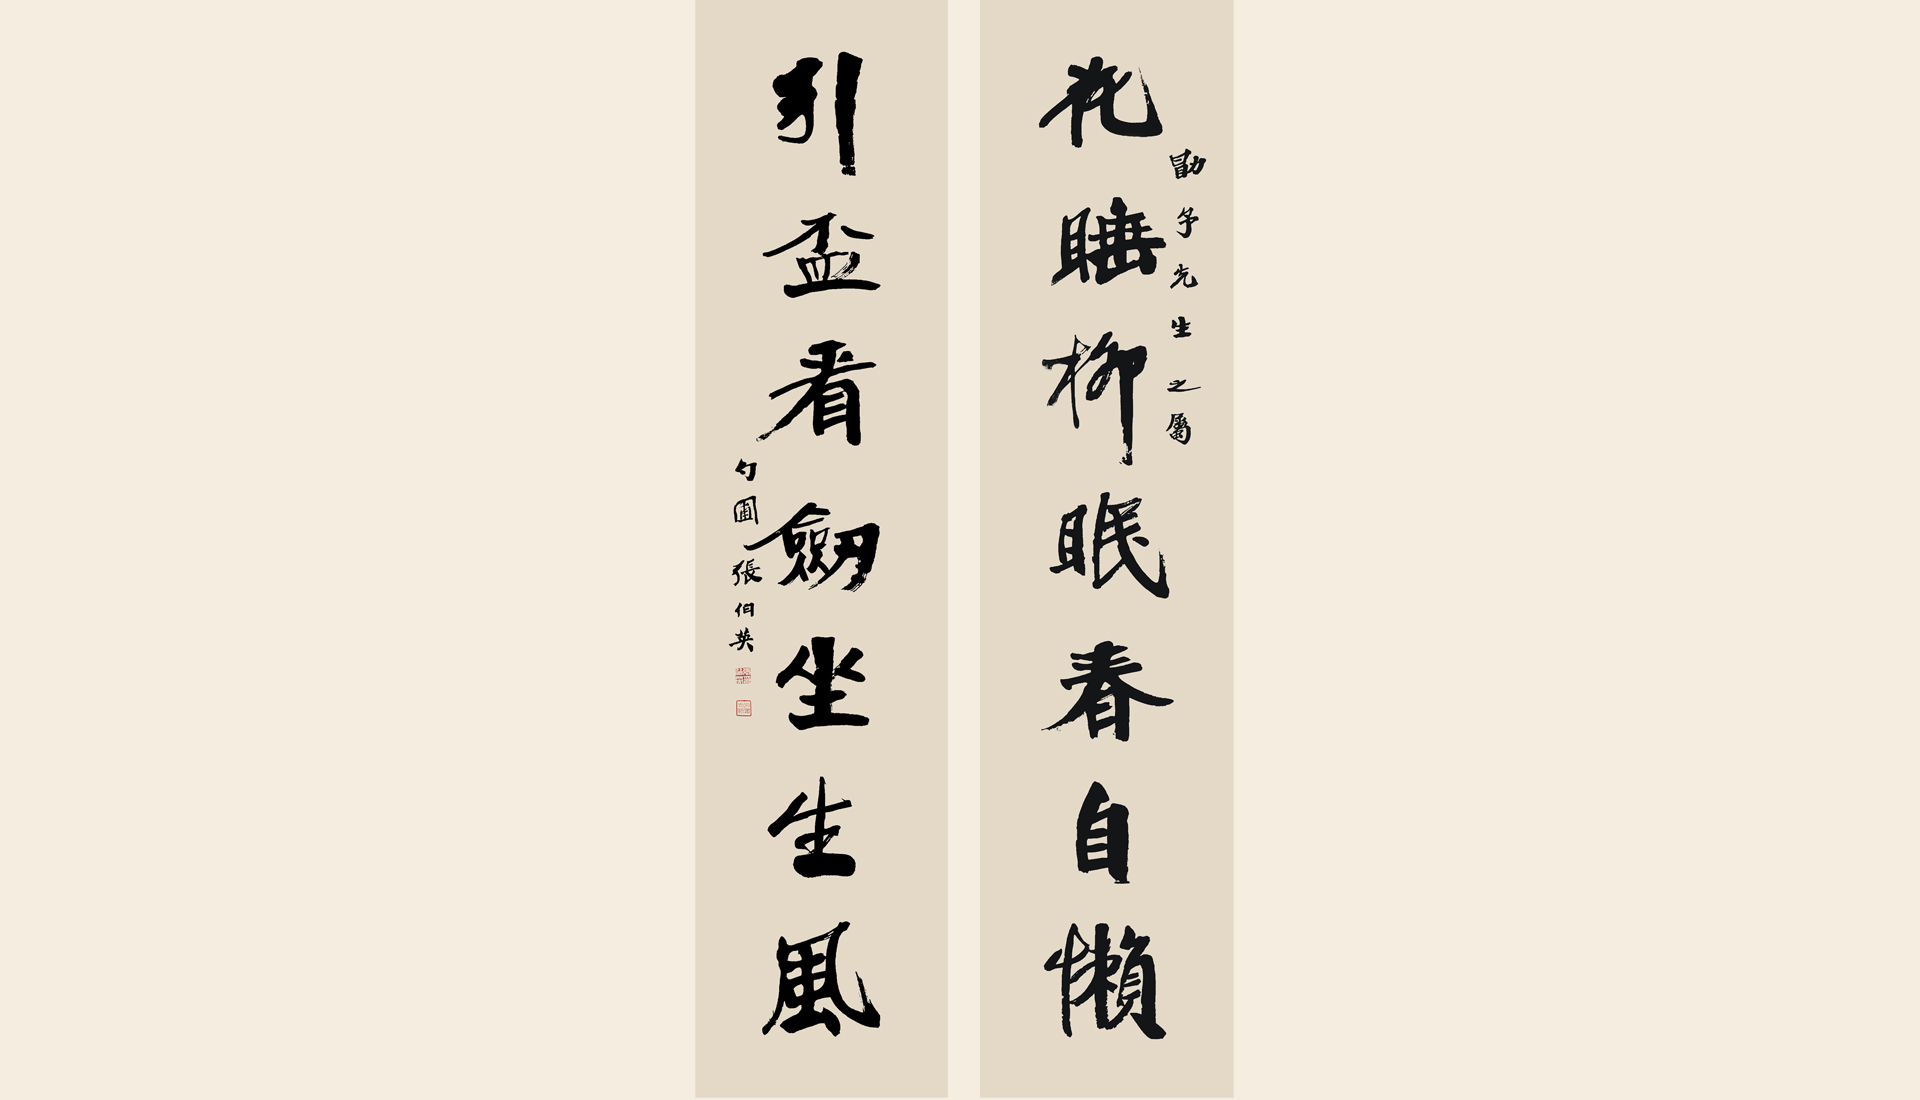 花睡柳眠春自懶
勖予先生之屬
引盃看劒坐生風
勺圃張伯英